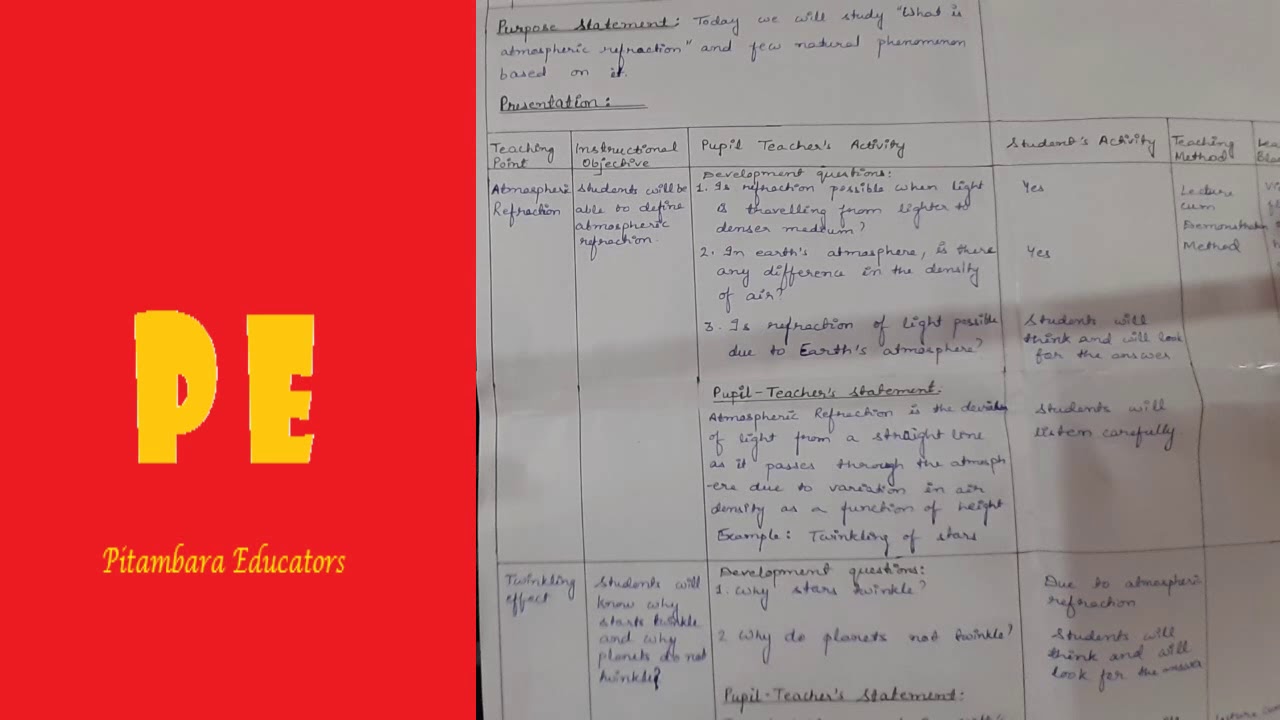 PE
Pitambara Educators
Purpose Statement: Today we will study "What is
atmospheric refraction" and few natural phenomenon
based on it.
Presentation:
Teaching
Point
Instructional
Objective
Pupil Teacher's Activity
Student's Activity
Teaching
Method
Atmospheri
Refraction
Students will be
able to define
atmospheric
refraction.
Development questions:
1. Is refraction possible when light
is travelling from lighter to
denser medium?
2. In earth's atmosphere, is there
any difference in the density
of air?
3. Is refraction of light possible
due to Earth's atmosphere?
Pupil-Teacher's statement:
Atmospheric Refraction is the
of light from a straight line
as it passes through the atmosph
-ere due to variation in air
density as a function of height
Example: Twinkling of stars
Yes
Yes
Students will
think and will look
for the answer
Students will
listen carefully.
Lecture
cum
Demonstration
Method
Twinkling
effect
Students will
know why
starts twinkle
and why
planets do not
twinkle?
Development questions:
1. Why stars twinkle?
2 Why do planets not twinkle?
Pupil-Teacher's Statement:
Due to atmospheric
refraction
Students will
think and will
look for the